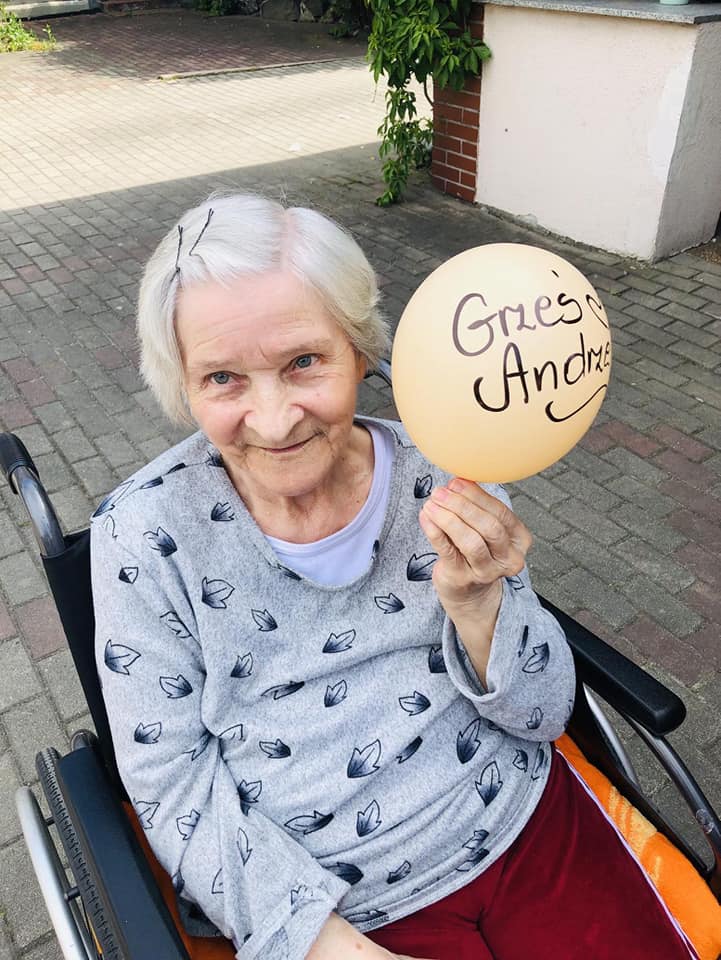 Grześ ♡
Andrze